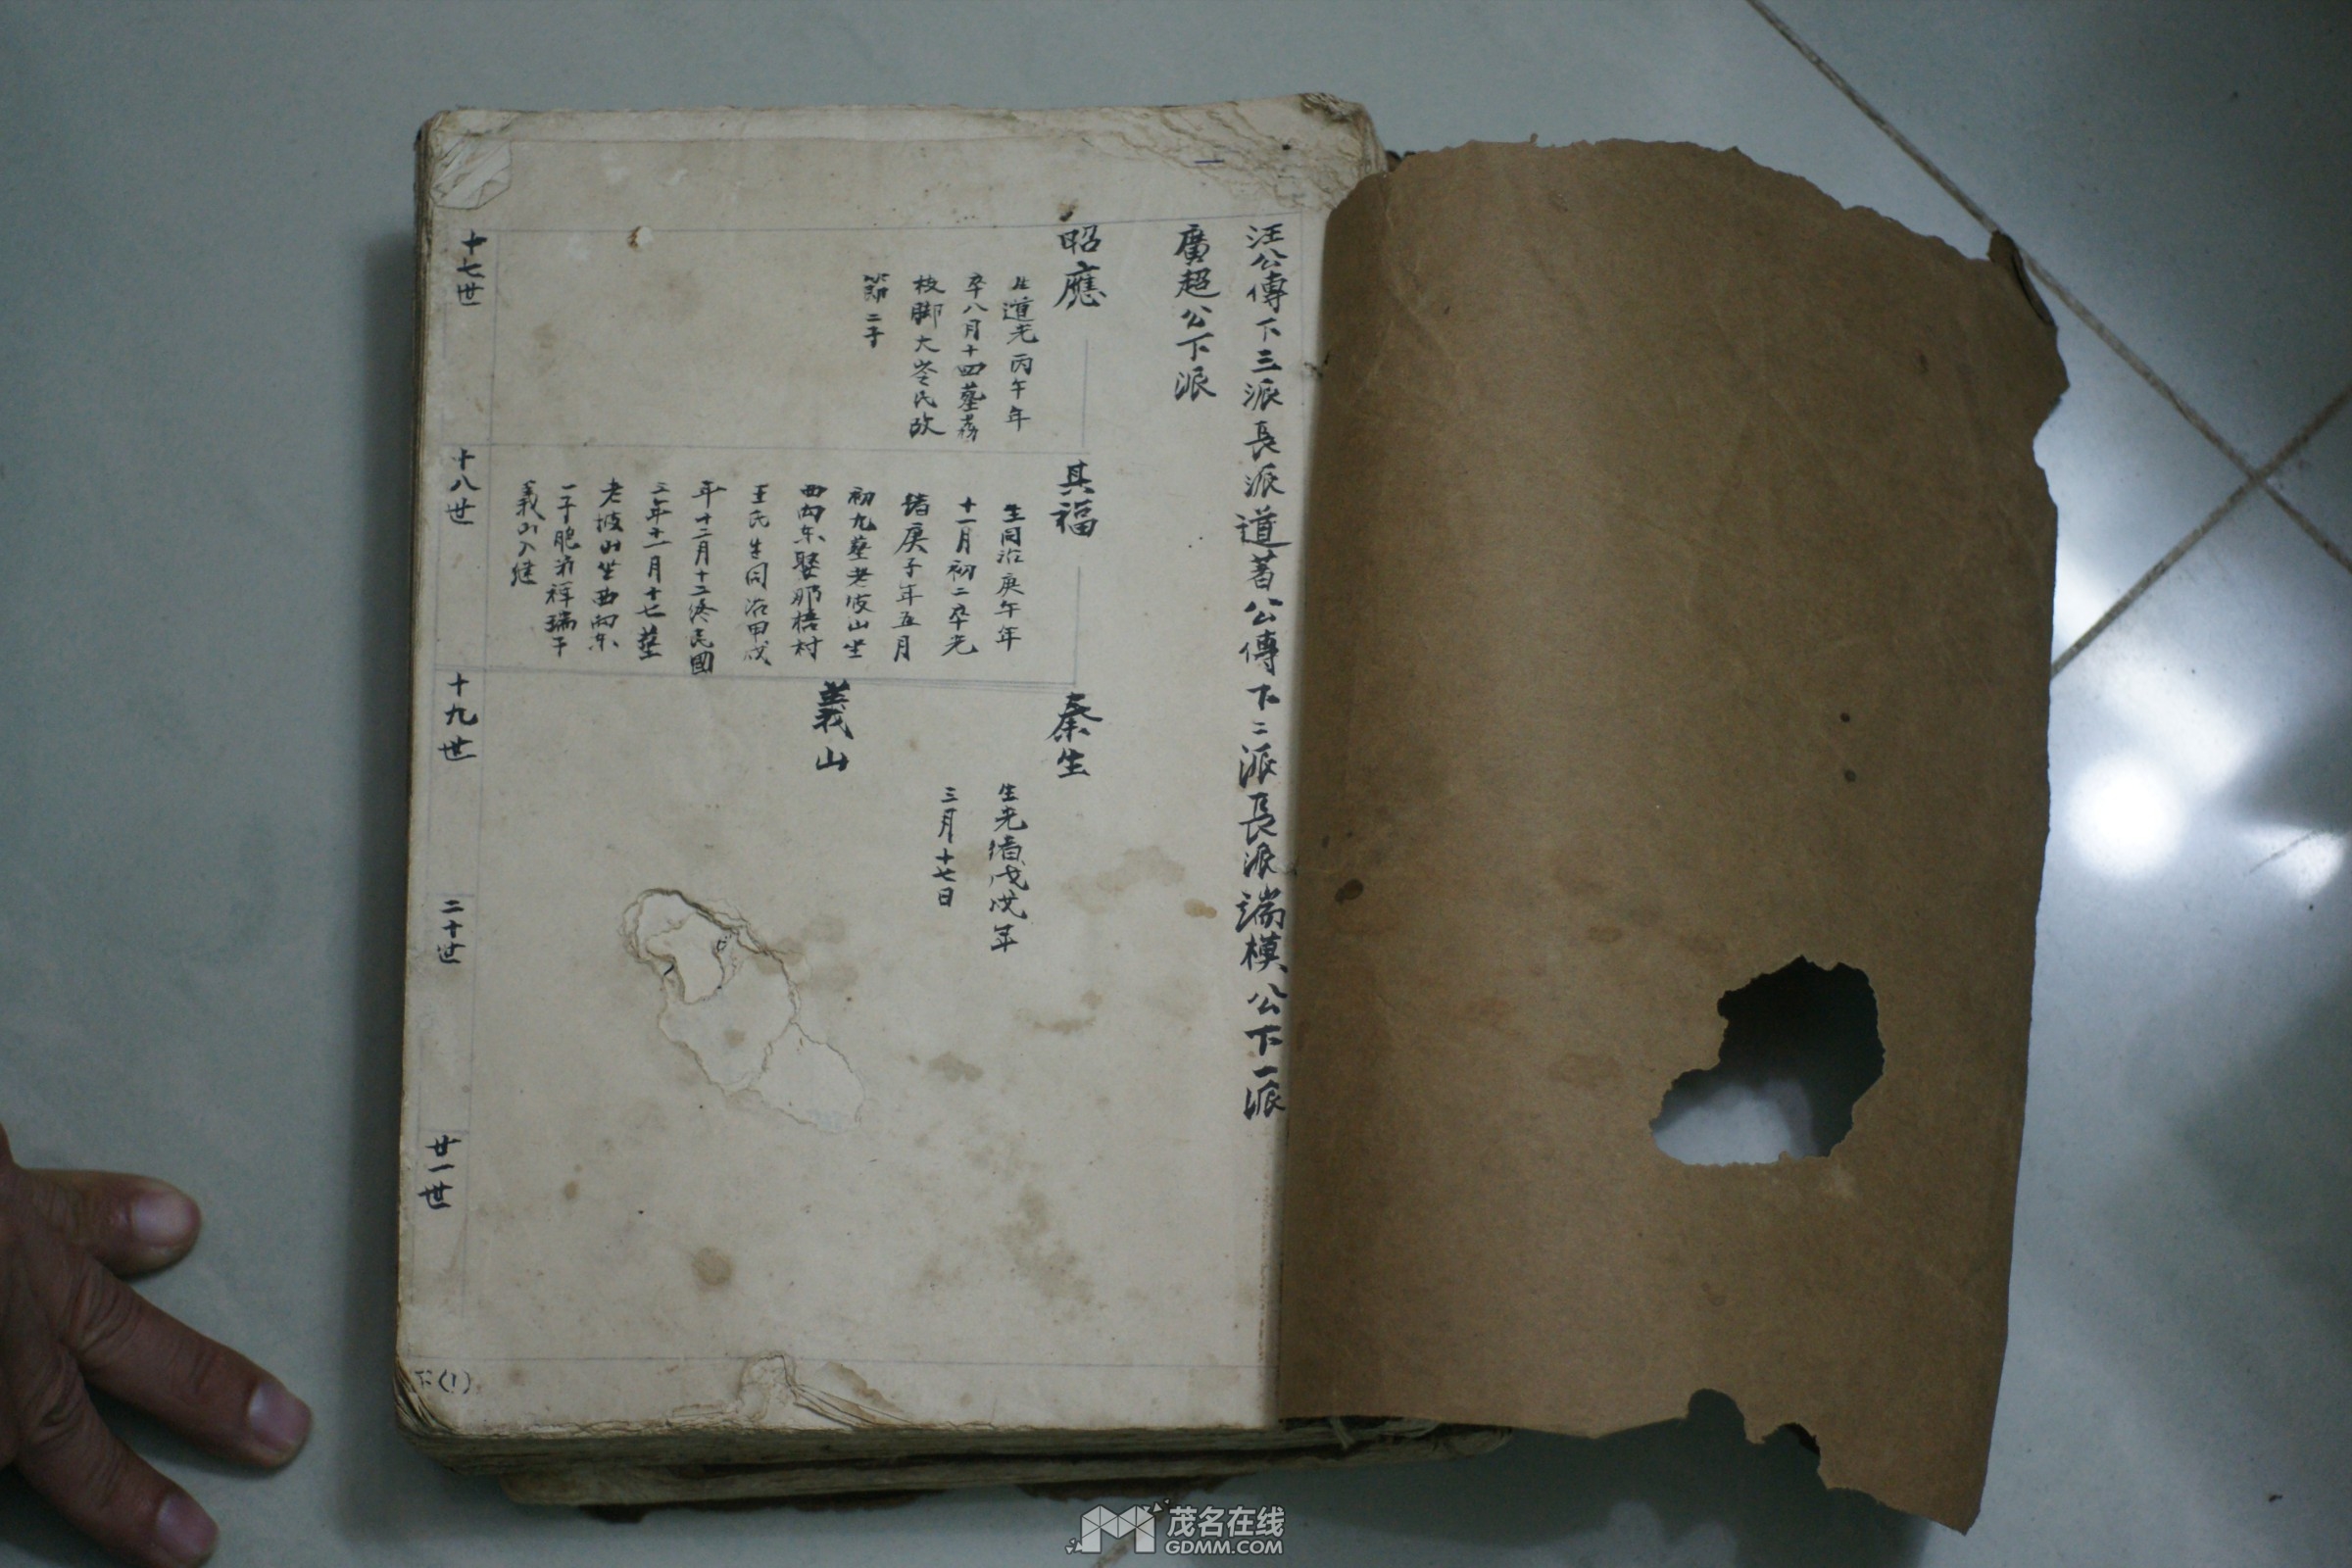 汪公傳下三派長派道著公傳下二派長派端模公下一派
廣超公下派
十七世
昭應
生道光丙午年
卒八月十四墓
枝脚大岺民改
節二子
十八世
其福
生同治庚午年
十一月初二卒光
緒庚子年五月
初九墓老坡山坐
西向东娶那梧村
王氏生同治甲戌
年十二月十二終民國
三年十一月十七墓
老坡山坐西向东
一子胞弟祥瑞子
義山入继
十九世
秦生
生光緖戊戌年
三月十七日
義山
二十世
廿一世
下(1)
茂名在线
GDMM.COM